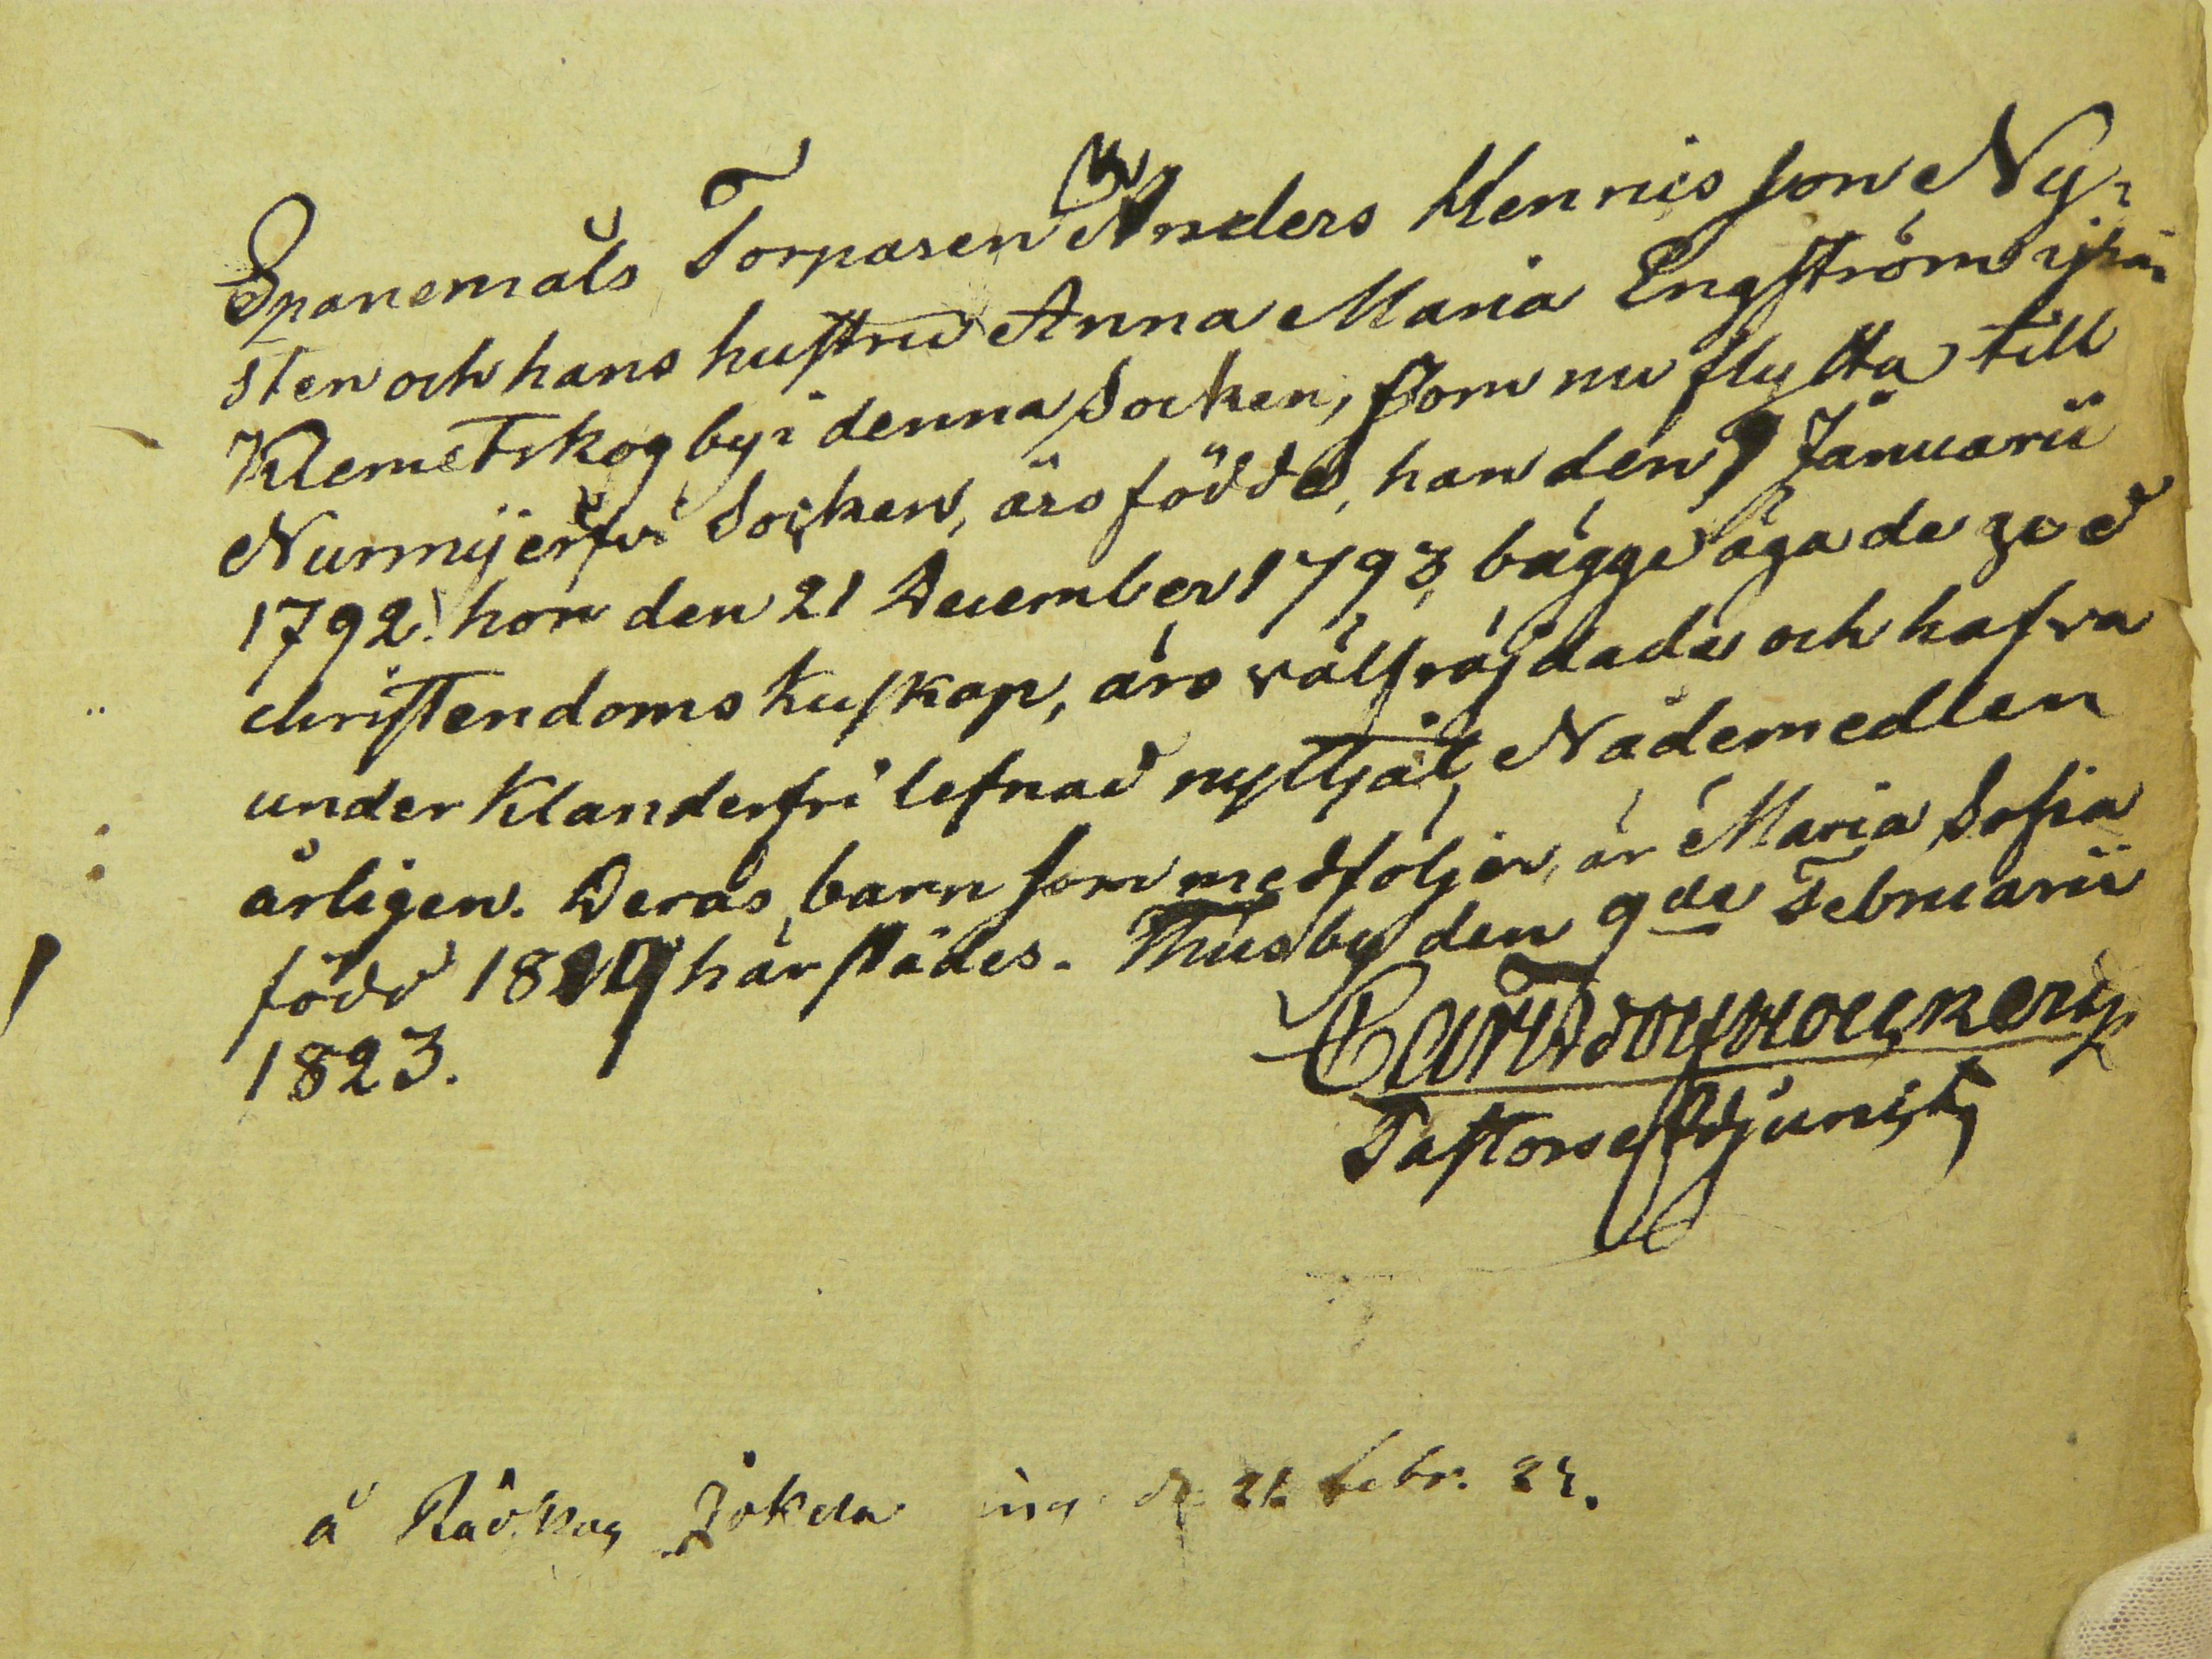 Spanemåls Torparen Anders Hennicsson Ny-
sten och hans hustru Anna Maria Engström ifrån
Klemetskog by i denna Socken, som nu flytta till
Nurmijerfvi Socken, äro födde, han den 9 Januarii
1792. hon den 21 December 1793, bägge äga de god
christendoms kuskap, äro välfräjdade och hafva
under klanderfri lefnad nyttjat Nådemedlen
årligen. Deras barn som medföljer, är Maria Sofia
född 1819 härstädes. Thusby den 9de Februarii
1823.
Pastors Adjunct
å Jokela d. 21 febr.